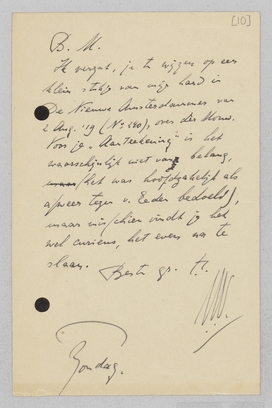 [10]
B. M.
Ik vergat, je te wijzen op een
klein stukje van mijn hand in
De Nieuwe Amsterdammer van
2 Aug. '19 (No 240), over der Mouw.
Voor je "Aantekening" is het
waarschijnlijk niet van belang,
(het was hoofdzakelijk als
afweer tegen v. Eeden bedoeld),
maar misschien vindt je het
wel curieus, het even na te
slaan. Beste gr. t.t.
Zondag.